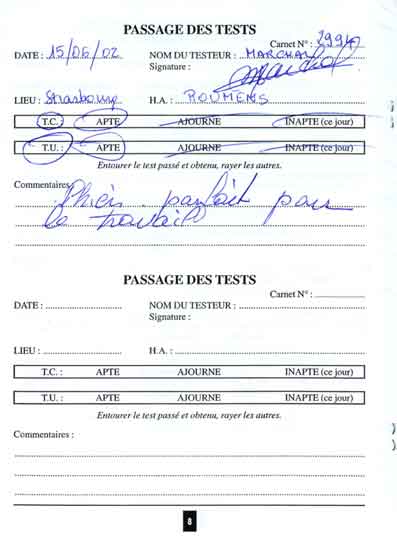 PASSAGE DES TESTS
Carnet N° : 2994
DATE : 15/06/02 NOM DU TESTEUR : MARCHAL
Signature :
LIEU : Strasbourg H.A. : ROUMENS
T.C. : APTE AJOURNE INAPTE (ce jour)
T.U. : APTE AJOURNE INAPTE (ce jour)
Entourer le test passé et obtenu, rayer les autres.
Commentaires : Chien parfait pour
le travail
PASSAGE DES TESTS
Carnet N° :
DATE : NOM DU TESTEUR :
Signature :
LIEU : H.A. :
T.C. : APTE AJOURNE INAPTE (ce jour)
T.U. : APTE AJOURNE INAPTE (ce jour)
Entourer le test passé et obtenu, rayer les autres.
Commentaires :
8